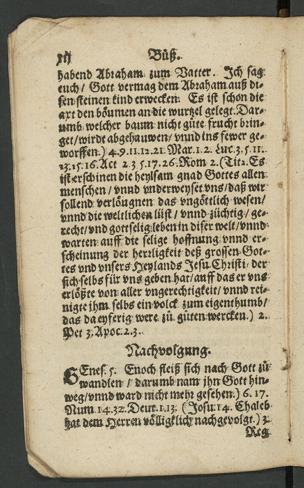 Büß.
habend Abraham zum Vatter. Ich sag
euch / Gott vermag dem Abraham auß di-
sen steinen kind erwecken: Es ist schon die
axt den böumen an die wurtzel gelegt. Dar-
umb welcher baum nicht güte frucht brin-
get / wirdt abgehauwen / vnnd ins fewer ge-
worffen.) 4.9.11.12.21. Mar.1.2. Luc.3.5.11.
13.15.16. Act 2.3.5.17.26. Rom 2. (Tit2. Es
ist erschinen die heylsam gnad Gottes allen
menschen / vnnd vnderweyset vns / daß wir
sollend verlöugnen das vngöttlich wesen /
vnnd die weltlichen lüst / vnnd züchtig / ge-
recht / vnd gottselig leben in diser welt / vnnd
warten auff die selige hoffnung vnnd er-
scheinung der herrligkeit deß grossen Got-
tes vnd vnsers Heylands Jesu Christi: der
sich selbs für vns geben hat / auff das er vns
erlößte von aller vngerechtigkeit / vnnd rei-
nigte ihm selbs ein volck zum eigenthumb /
das da eyferig were zu güten wercken.) 2.
Pet 3. Apoc.2.3.
Nachvolgung.
GEnes. 5. Enoch fleiß sich nach Gott zů
wandlen / darumb nam jhn Gott hin-
weg / vnnd ward nicht mehr gesehen.) 6.17.
Num 14.32. Deut.1.13. (Josu.14. Chaleb
hat dem Herren völligklich nachgevolgt.) 3.
Reg